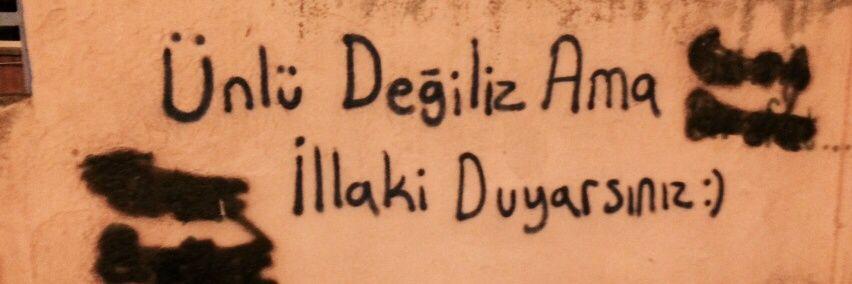 Ünlü Değiliz Ama
İllaki Duyarsınız:)